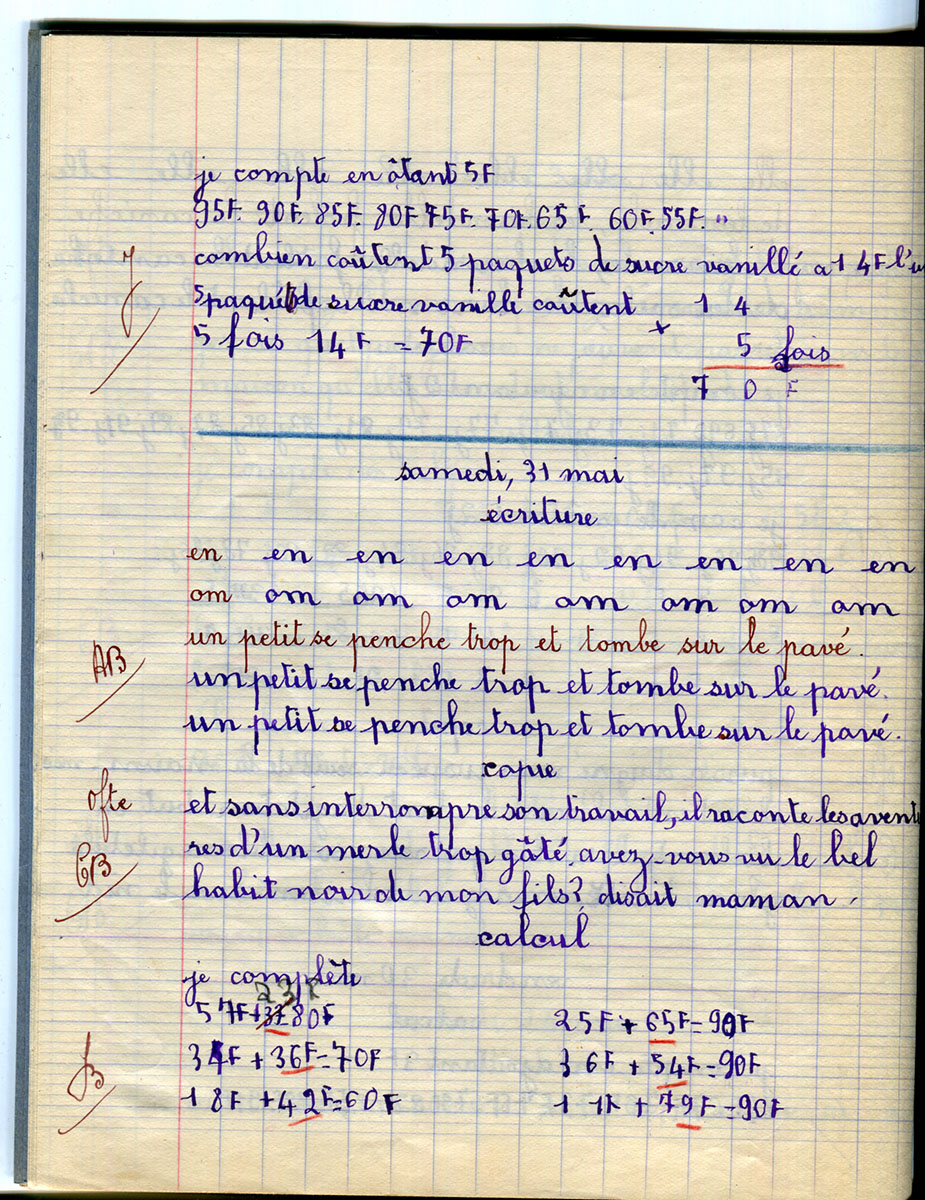 je compte en ôtant 5F
95F. 90F. 85F. 80F 75F. 70F. 65F. 60F. 55F. "
combien coûtent 5 paquets de sucre vanillé a 14F l'u
5 paquets de sucre vanille coûtent 1 4
5 fois 14F = 70F × 5 fois
7 0 F
samedi, 31 mai
écriture
en en en en en en en en en
om om om om om om om om
un petit se penche trop et tombe sur le pavé.
AB
un petit se penche trop et tombe sur le pavé.
un petit se penche trop et tombe sur le pavé.
copie
et sans interrompre son travail, il raconte les avent
res d'un merle trop gâté. avez-vous vu le bel
CB
habit noir de mon fils? disait maman.
calcul
je complète
23F
57F+ 80F 25F + 65F = 90F
34F + 36F = 70F 36F + 54F = 90F
B
18F + 42F = 60F 11F + 79F = 90F